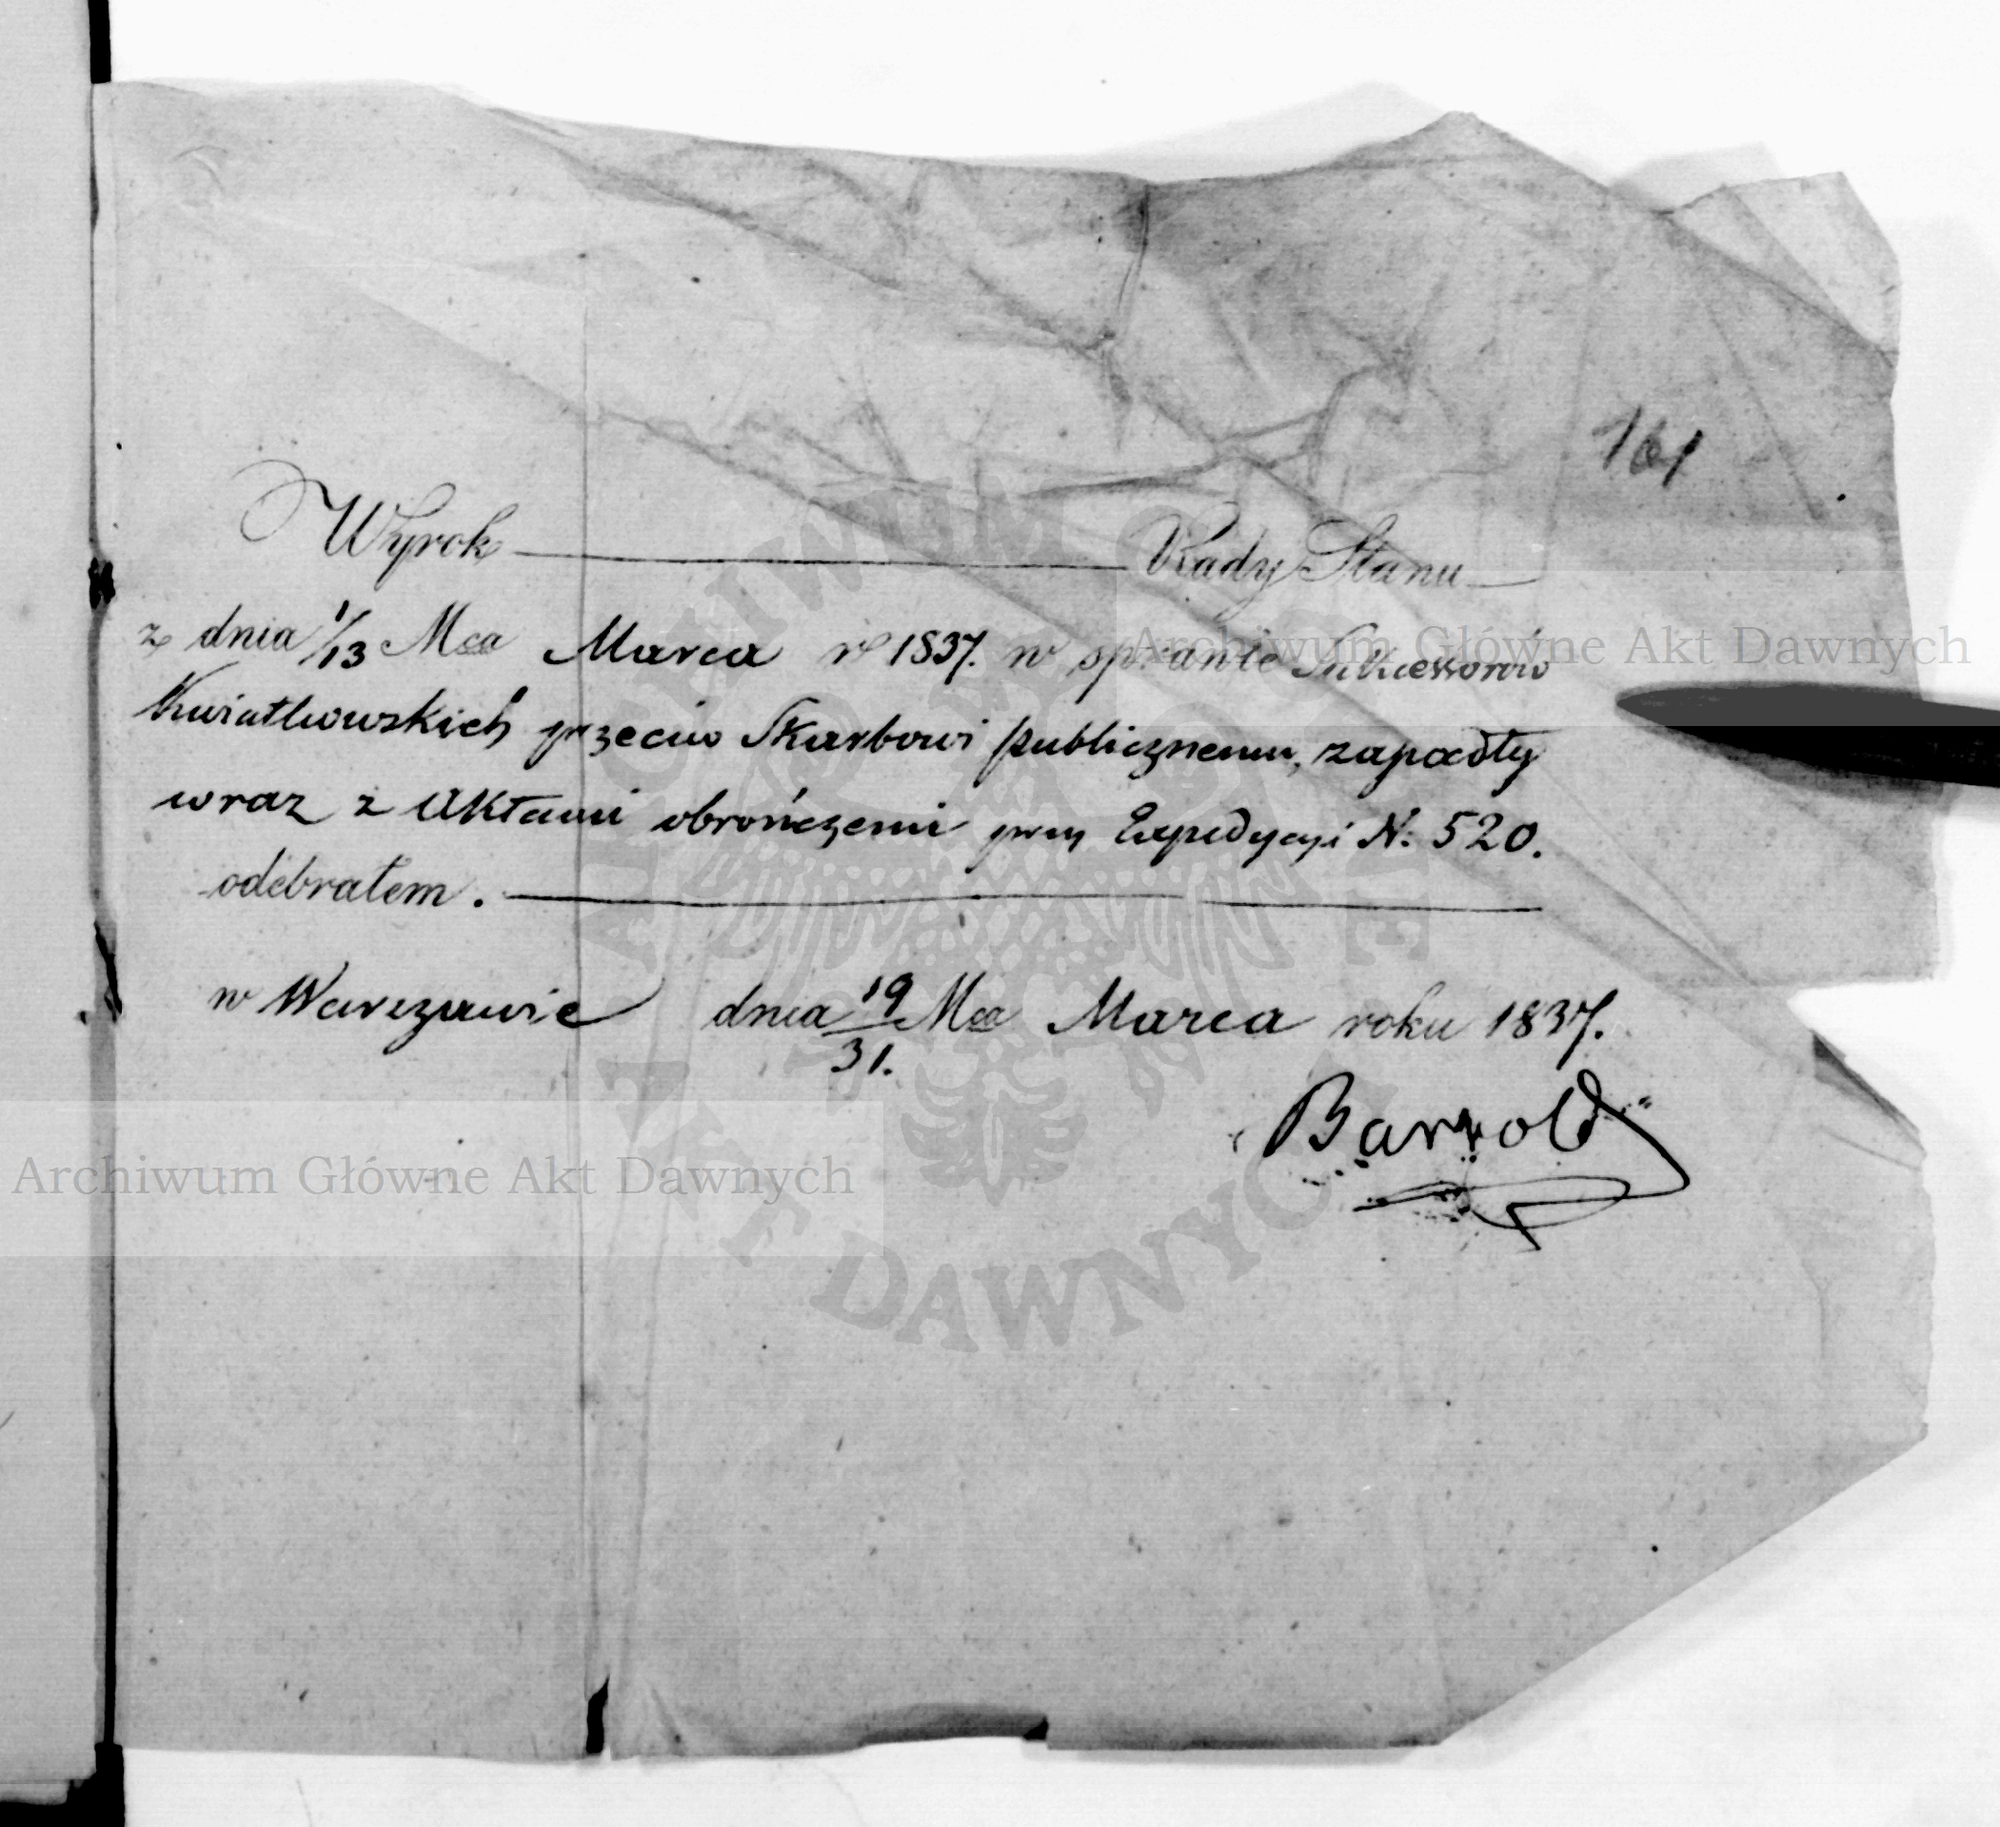 161
Wyrok Rady Stanu
z dnia 1/13 Mca Marca r 1837. w sprawie Sukcessorów
Kwiatkowskich przeciw Skarbowi publicznemu, zapadły
wraz z Aktami obrończemi przy Expedycyi N: 520.
odebrałem.
w Warszawie dnia 19/31. Mca Marca roku 1837.
Archiwum Główne Akt Dawnych
Archiwum Główne Akt Dawnych